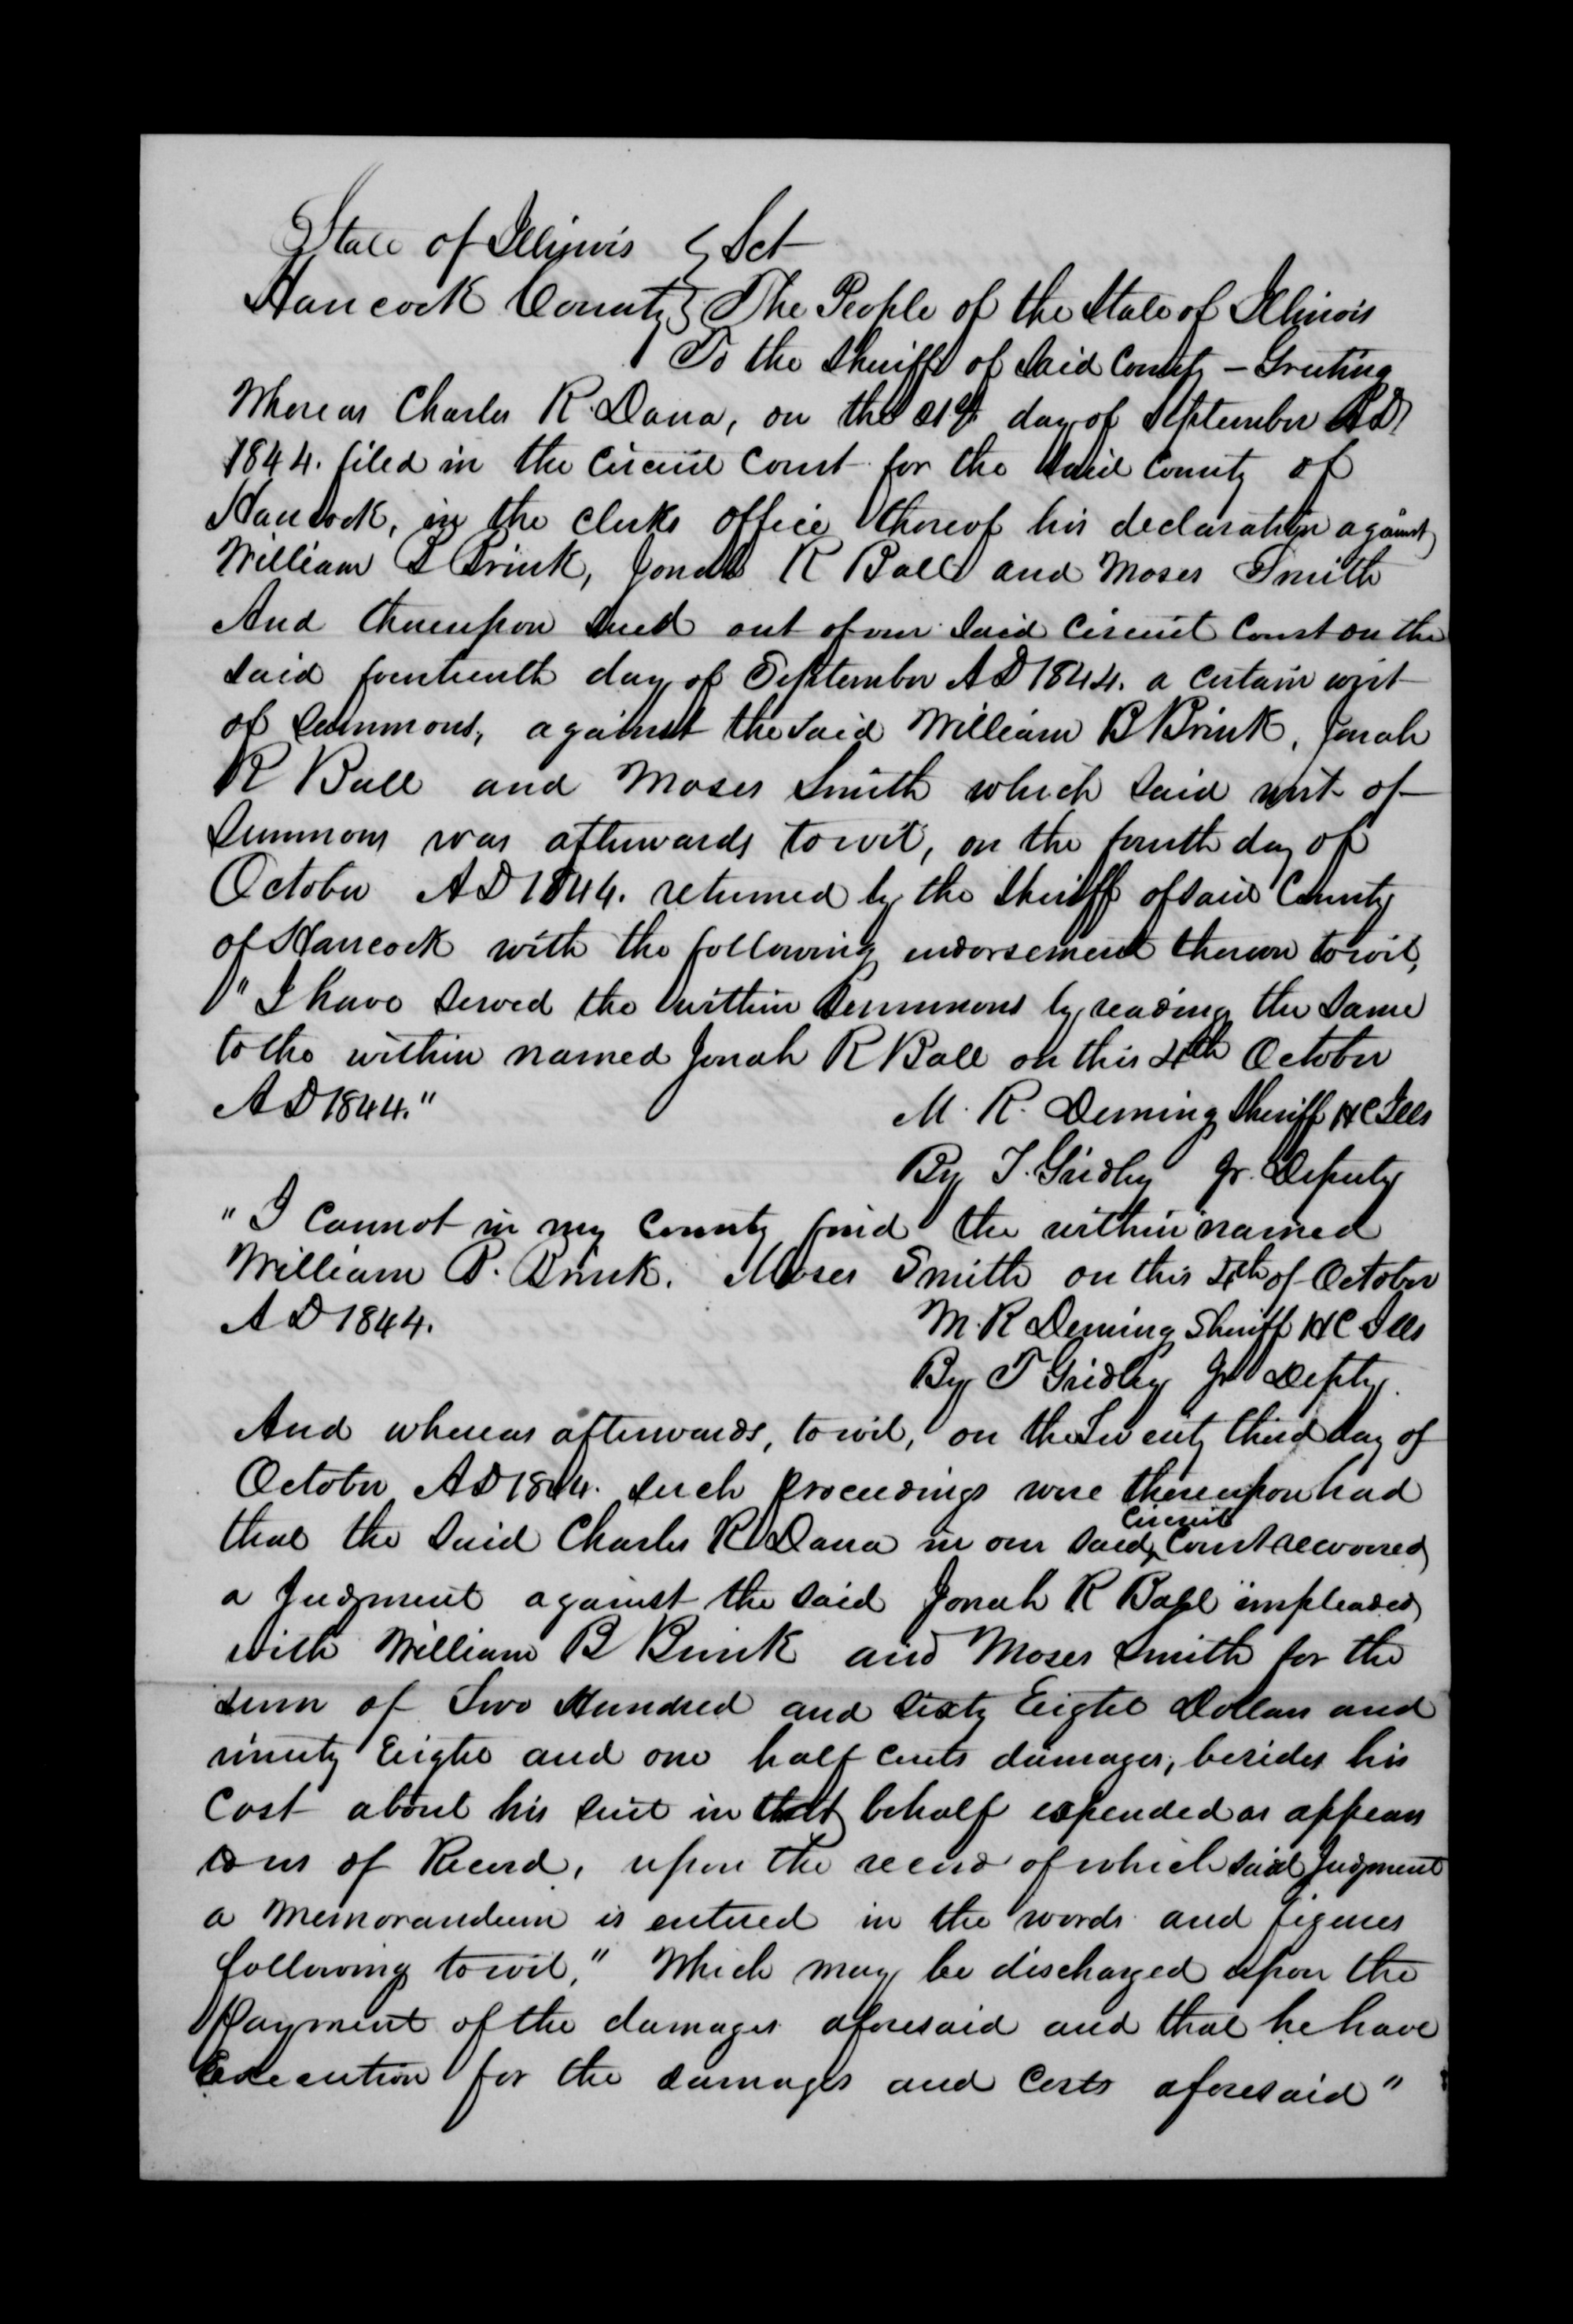 State of Illinois } Sct
Hancock County } The People of the State of Illinois
To the Sheriff of Said County – Greeting
Whereas Charles R. Dana, on the day of September A.D.
1844. filed in the Circuit Court for the said County of
Hancock, in the clerks office thereof his declaration against
William B Brink, Jonah R Ball and Moses Smith
And thereupon sued out of our Said Circuit Court on the
said fourteenth day of September A D 1844. a certain writ
of Summons, against the said William B Brink, Jonah
R Ball and Moses Smith which said writ of
Summons was afterwards to wit, on the fourth day of
October A D 1844. returned by the Sheriff of said County
of Hancock with the following endorsement thereon to wit,
"I have served the within Summons by reading the same
to the within named Jonah R Ball on this 4th October
A D 1844."
M. R. Deming Sheriff H C Ills
By T. Gridley Jr. Deputy
"I cannot in my County find the within named
William B. Brink. Moses Smith on this 4th of October
A D 1844.
M. R Deming Sheriff H C Ills
By T Gridley Jr Depty.
And whereas afterwards, to wit, on the Twenty third day of
October A D 1844. such proceedings were thereupon had
that the said Charles R Dana in our said Circuit Court recovered
a Judgment against the said Jonah R Ball impleaded
with William B Brink and Moses Smith for the
sum of Two Hundred and Sixty Eight Dollars and
ninety Eight and one half cents damages, besides his
Cost about his suit in that behalf expended as appears
to us of Record, upon the record of which said Judgment
a memorandum is entered in the words and figures
following to wit, "Which may be discharged upon the
Payment of the damages aforesaid and that he have
Execution for the damages and Costs aforesaid"